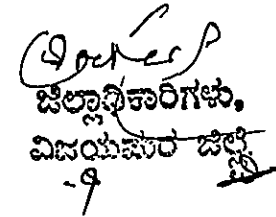 ಜಿಲ್ಲಾಧಿಕಾರಿಗಳು,
ವಿಜಯಪುರ ಜಿಲ್ಲೆ